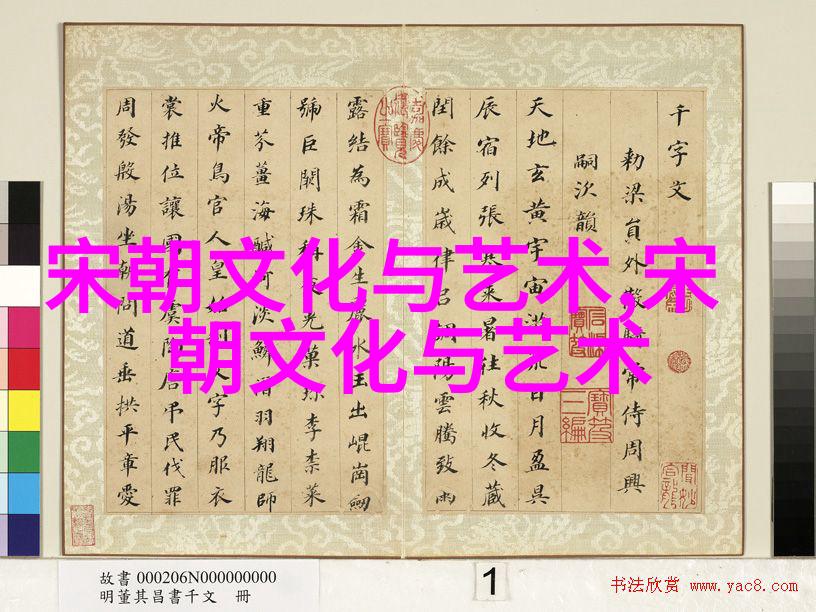 千字文
勅梁員外散騎常侍周興
嗣次韻
天地玄黃宇宙洪荒日月盈昃
辰宿列張寒來暑往秋收冬藏
閏餘成歲律呂調陽雲騰致雨
露結為霜金生麗水玉出崐崗劒
號巨闕珠稱夜光菓珍李柰菜
重芥薑海鹹河淡鱗潛羽翔龍師
火帝鳥官人皇始制文字乃服衣
裳推位讓國有虞陶唐弔民伐罪
周發殷湯坐朝問道垂拱平章愛
宋朝文化与艺术,宋
朝文化与艺术
故書 000206N000000000
明董其昌書千文 冊
1
书法欣赏 www.yac8.com